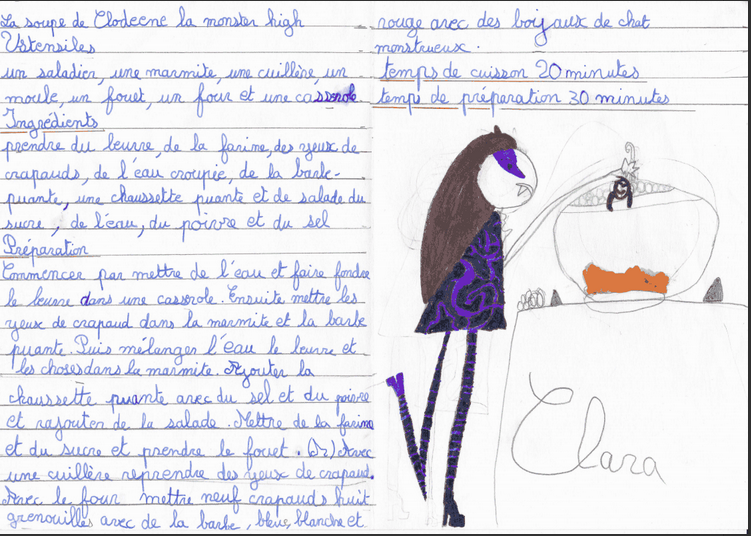 La soupe de Clodeene la monster high
Ustensiles
un saladier, une marmite, une cuillère, un
moule, un fouet, un four et une casserole
Ingrédients
prendre du beurre, de la farine, des yeux de
crapauds, de l'éau croupie, de la barbe-
puante, une chaussette puante et de salade du
sucre, de l'eau, du poivre et du sel
Préparation
Commencer par mettre de l'eau et faire fondre
le beurre dans une casserole. Ensuite mettre les
yeux de crapaud dans la marmite et la barbe
puante. Puis mélanger l'eau le beurre et
les choses dans la marmite. Ajouter la
chaussette puante avec du sel et du poivre
et rajouter de la salade. Mettre de la farine
et du sucre et prendre le fouet. Avec
une cuillère reprendre des yeux de crapaud.
Avec le four mettre neuf crapauds huit
grenouilles avec de la barbe, bleue, blanche et
rouge avec des boyaux de chat
monstrueux.
temps de cuisson 20 minutes
temps de préparation 30 minutes
Clara